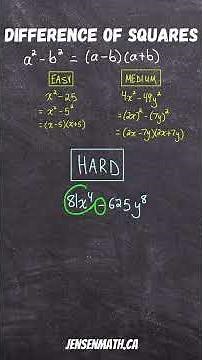 DIFFERENCE OF SQUARES
a² - b² = (a-b)(a+b)
EASY
x² - 25
= x² - 5²
= (x-5)(x+5)
MEDIUM
4x² - 49y²
= (2x)² - (7y)²
= (2x-7y)(2x+7y)
HARD
81x⁴ - 625y⁸
JENSENMATH.CA